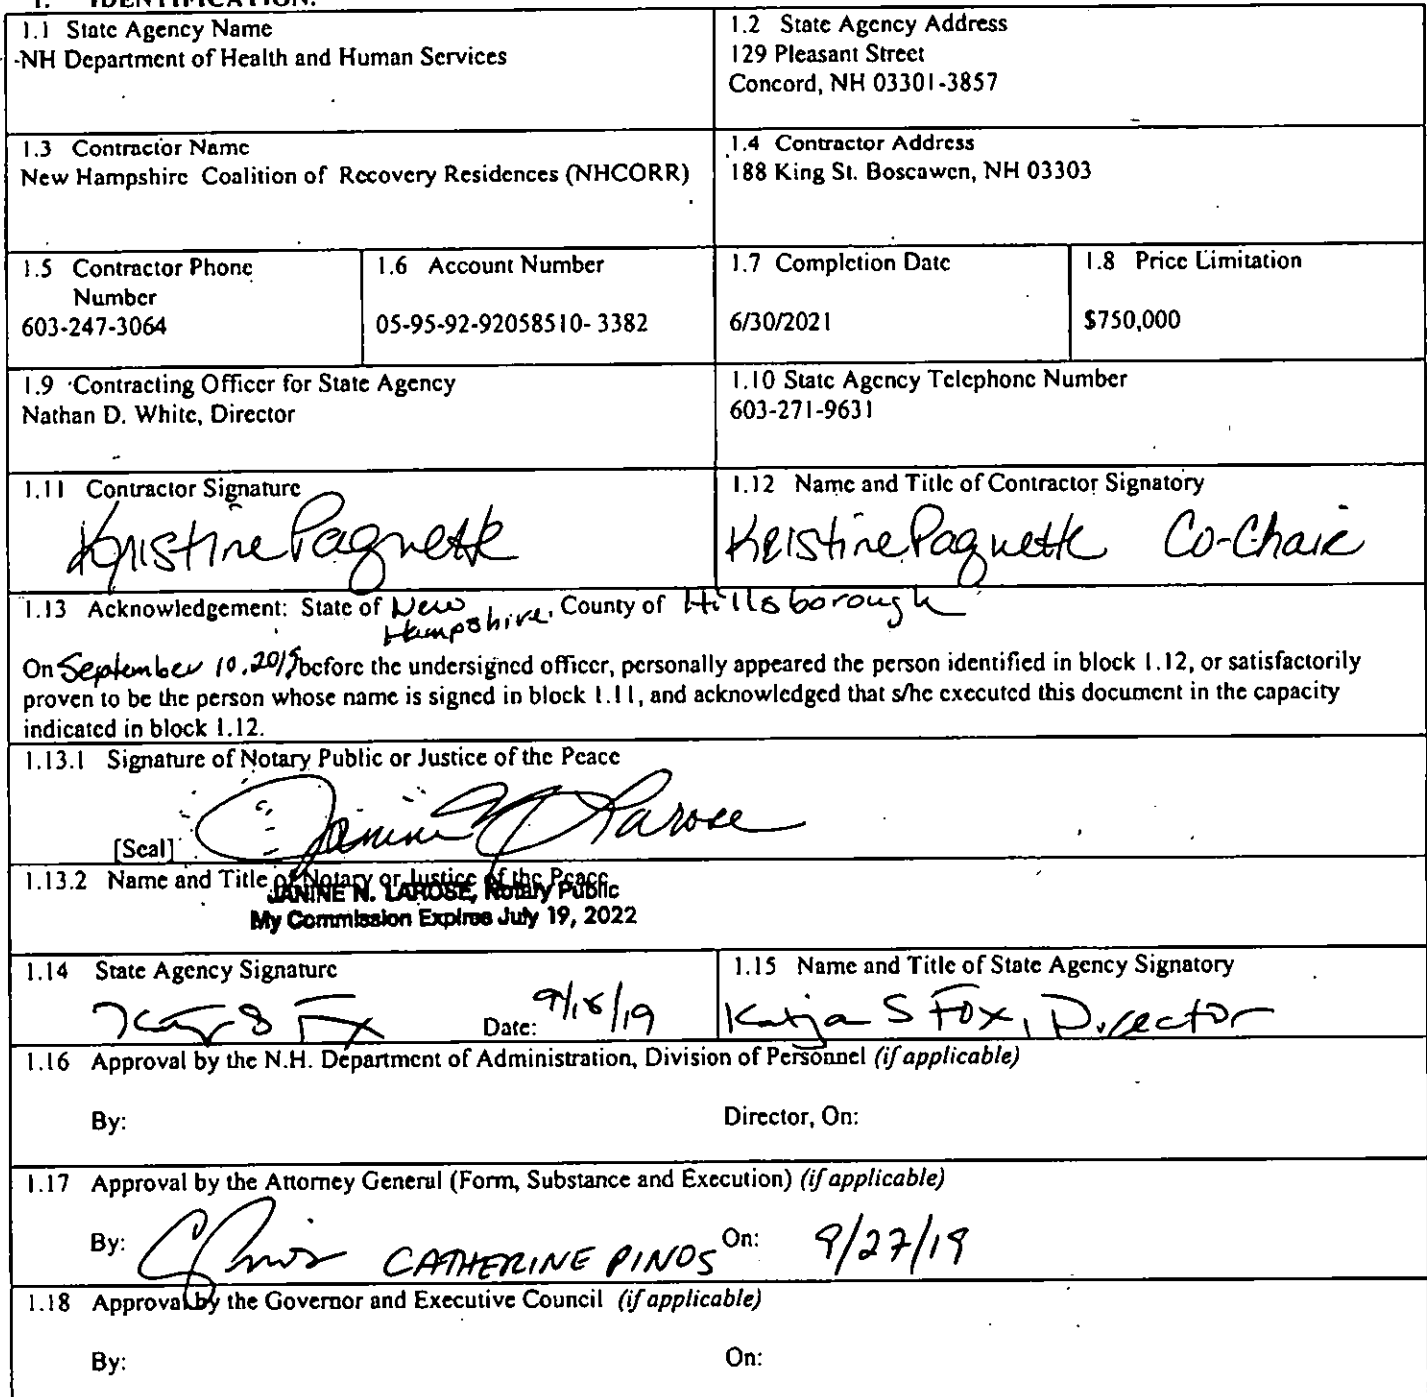 1. IDENTIFICATION.
1.1 State Agency Name
NH Department of Health and Human Services
1.2 State Agency Address
129 Pleasant Street
Concord, NH 03301-3857
1.3 Contractor Name
New Hampshire Coalition of Recovery Residences (NHCORR)
1.4 Contractor Address
188 King St. Boscawen, NH 03303
1.5 Contractor Phone
Number
603-247-3064
1.6 Account Number
05-95-92-92058510- 3382
1.7 Completion Date
6/30/2021
1.8 Price Limitation
$750,000
1.9 Contracting Officer for State Agency
Nathan D. White, Director
1.10 State Agency Telephone Number
603-271-9631
1.11 Contractor Signature
Kristine Paquette
1.12 Name and Title of Contractor Signatory
Kristine Paquette Co-Chair
1.13 Acknowledgement: State of New Hampshire, County of Hillsborough
On September 10, 2019 before the undersigned officer, personally appeared the person identified in block 1.12, or satisfactorily
proven to be the person whose name is signed in block 1.11, and acknowledged that s/he executed this document in the capacity
indicated in block 1.12.
1.13.1 Signature of Notary Public or Justice of the Peace
[Seal] Janine N Larose
1.13.2 Name and Title of Notary or Justice of the Peace
JANINE N. LAROSE, Notary Public
My Commission Expires July 19, 2022
1.14 State Agency Signature
Date: 9/18/19
1.15 Name and Title of State Agency Signatory
Katja S Fox, Director
1.16 Approval by the N.H. Department of Administration, Division of Personnel (if applicable)
By: Director, On:
1.17 Approval by the Attorney General (Form, Substance and Execution) (if applicable)
By: CATHERINE PINOS On: 9/27/19
1.18 Approval by the Governor and Executive Council (if applicable)
By: On: